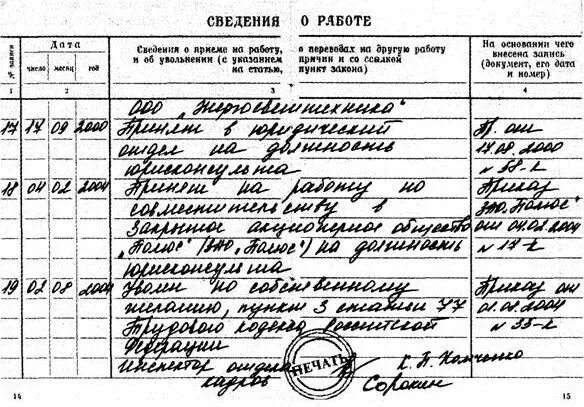 СВЕДЕНИЯ О РАБОТЕ
№ записи
Дата
число месяц год
Сведения о приеме на работу, о переводах на другую работу
и об увольнении (с указанием причин и со ссылкой
на статью, пункт закона)
На основании чего
внесена запись
(документ, его дата
и номер)
1 2 3 4
ООО „Энергосветтехника“
17 17 09 2000 Принят в юридический Пр. от
отдел на должность 17.08.2000
юрисконсульта № 58-к
18 04 02 2004 Принят на работу по Приказ
совместительству в ЗАО „Полюс“
Закрытое акционерное общество от 04.02.2004
„Полюс“ (ЗАО „Полюс“) на должность № 17-к
юрисконсульта
19 02 08 2004 Уволен по собственному Приказ от
желанию, пункт 3 статьи 77 01.08.2004
Трудового кодекса Российской № 33-к
Федерации
Инспектор отдела
кадров Сорокин
ПЕЧАТЬ
14 15